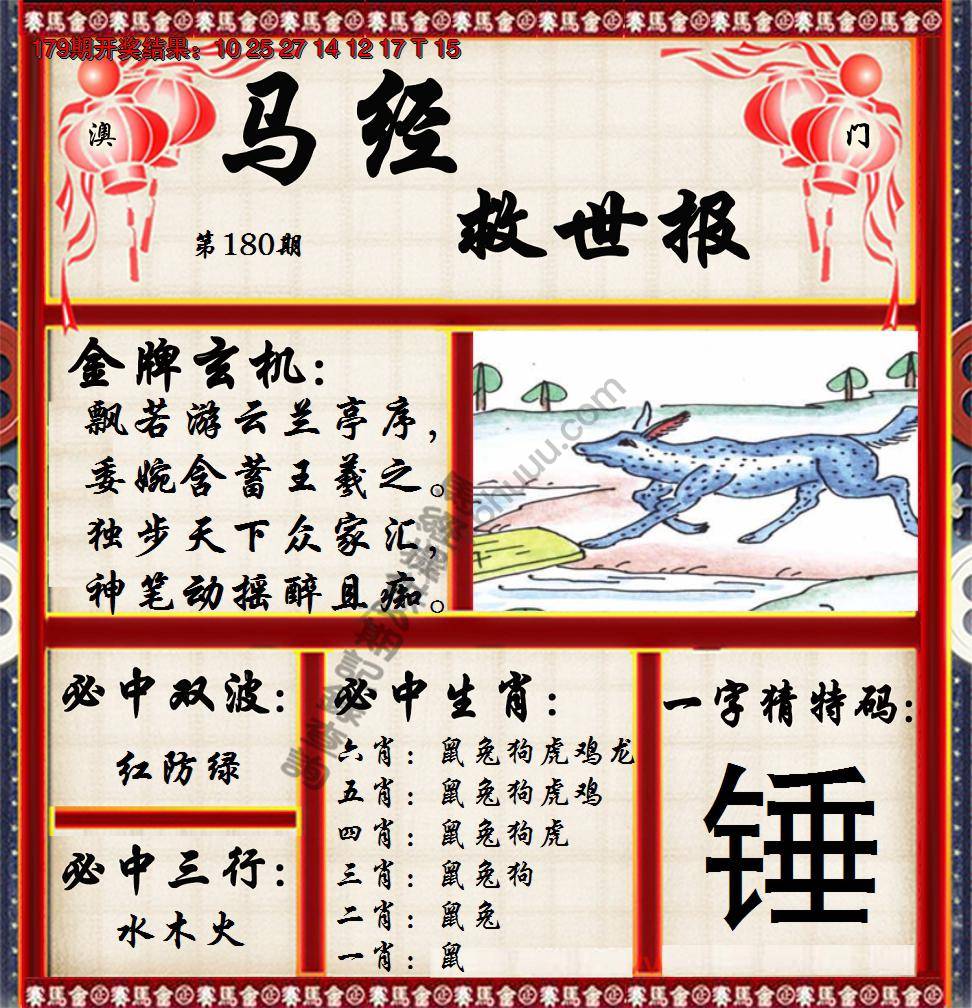 179期开奖结果：10 25 27 14 12 17 T 15
澳
门
马经
救世报
第180期
金牌玄机：
飘若游云兰亭序，
委婉含蓄王羲之。
独步天下众家汇，
神笔动摇醉且痴。
必中双波：
红防绿
必中三行：
水木火
必中生肖：
六肖：鼠兔狗虎鸡龙
五肖：鼠兔狗虎鸡
四肖：鼠兔狗虎
三肖：鼠兔狗
二肖：鼠兔
一肖：鼠
一字猜特码：
锤